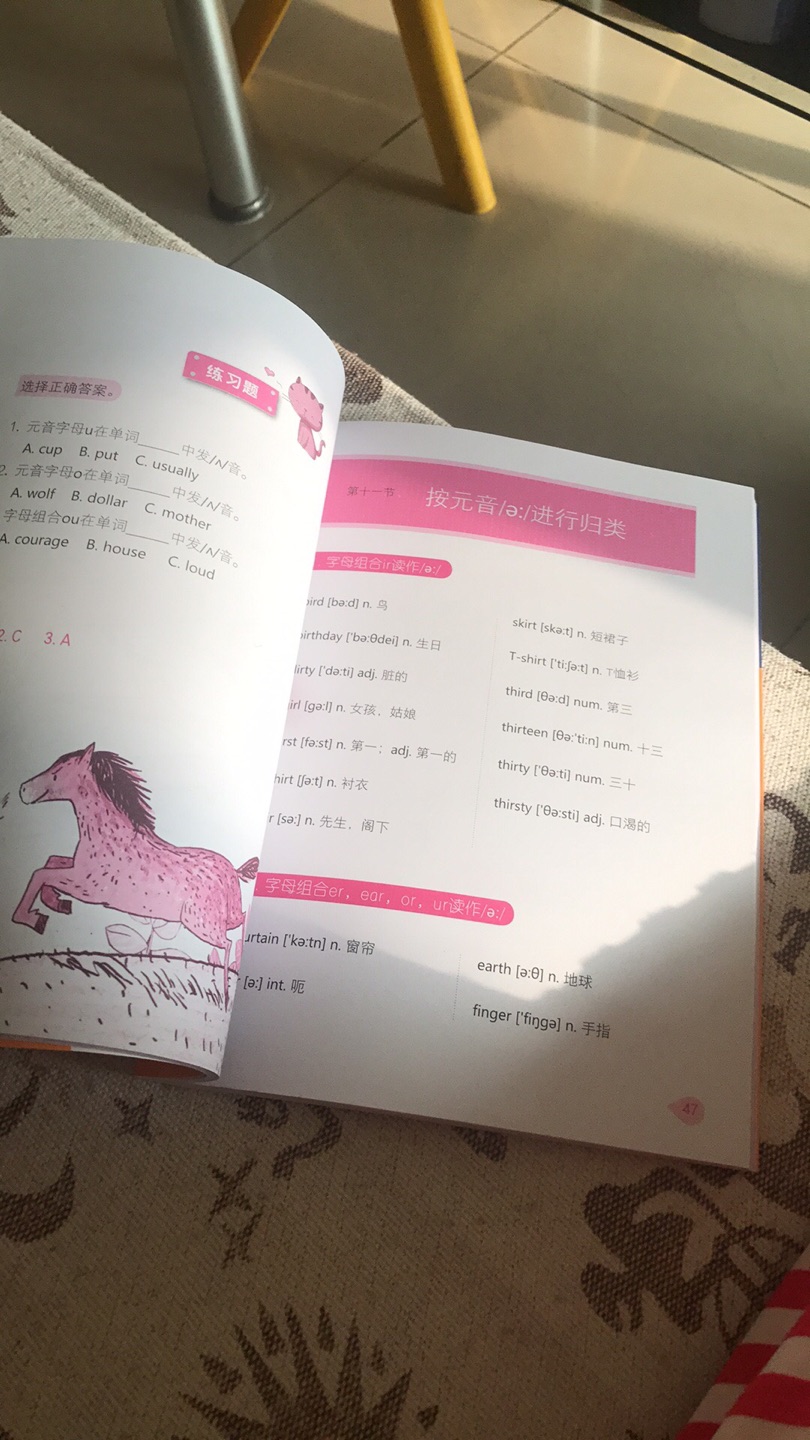 练习题
选择正确答案。
1. 元音字母u在单词______中发/ʌ/音。
A. cup B. put C. usually
2. 元音字母o在单词______中发/ʌ/音。
A. wolf B. dollar C. mother
字母组合ou在单词______中发/ʌ/音。
A. courage B. house C. loud
2. C 3. A
第十一节 按元音/ə:/进行归类
字母组合ir读作/ə:/
bird [bə:d] n. 鸟
birthday ['bə:θdei] n. 生日
dirty ['də:ti] adj. 脏的
irl [gə:l] n. 女孩，姑娘
rst [fə:st] n. 第一；adj. 第一的
hirt [ʃə:t] n. 衬衣
r [sə:] n. 先生，阁下
skirt [skə:t] n. 短裙子
T-shirt ['ti:ʃə:t] n. T恤衫
third [θə:d] num. 第三
thirteen [θə:'ti:n] num. 十三
thirty ['θə:ti] num. 三十
thirsty ['θə:sti] adj. 口渴的
字母组合er，ear，or，ur读作/ə:/
urtain ['kə:tn] n. 窗帘
r [ə:] int. 呃
earth [ə:θ] n. 地球
finger ['fiŋgə] n. 手指
47